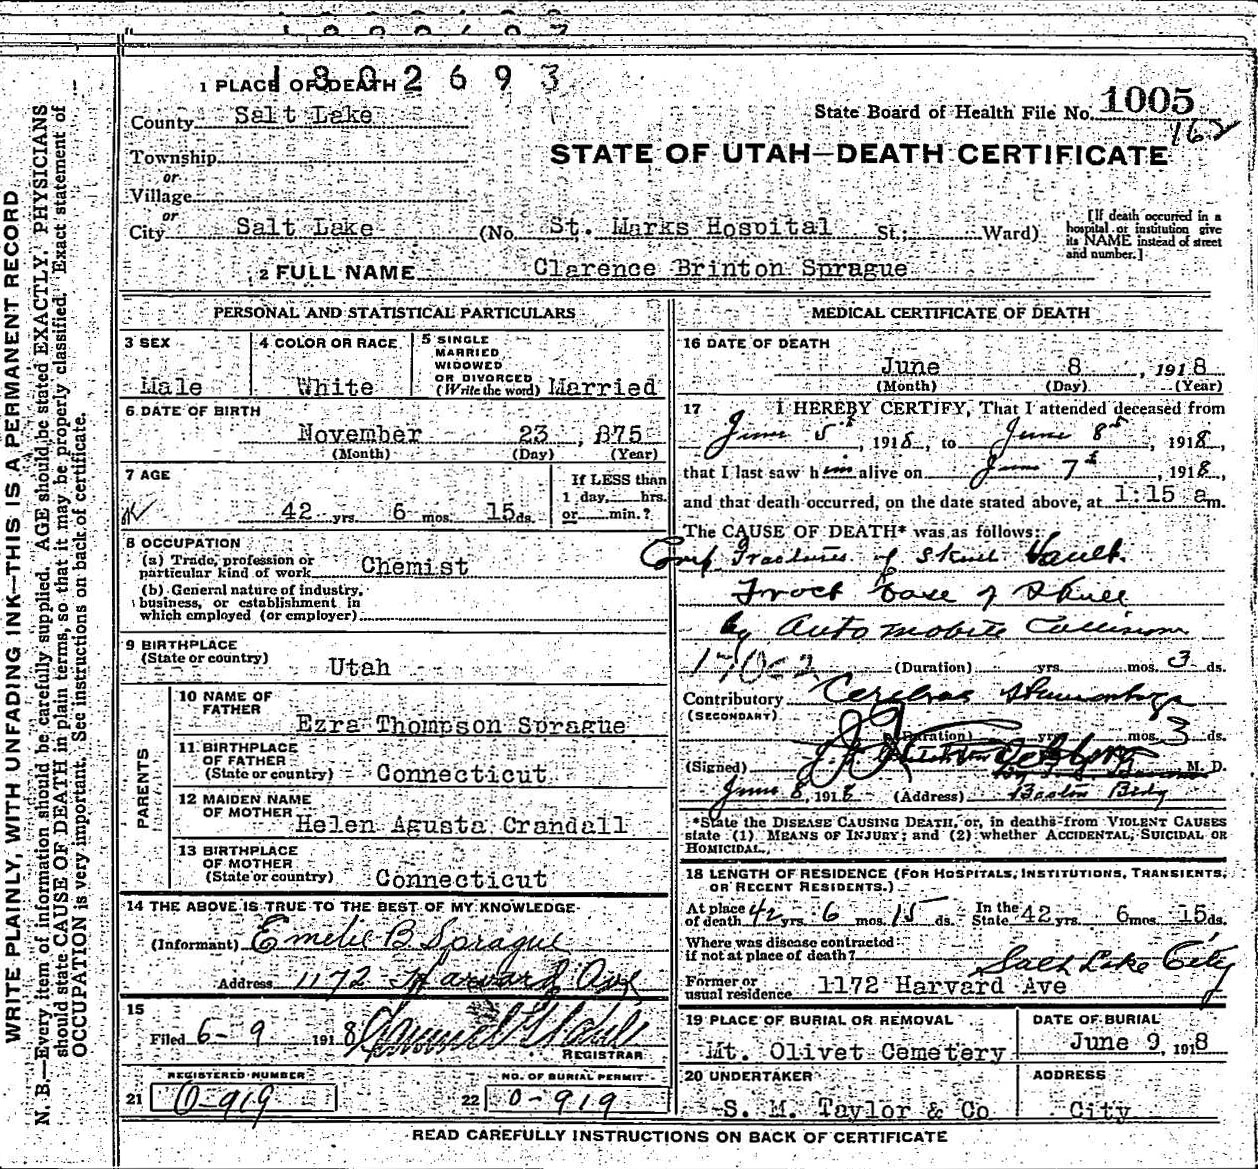 1802693
1 PLACE OF DEATH
State Board of Health File No. 1005
162
County Salt Lake
Township
or
Village
or
STATE OF UTAH—DEATH CERTIFICATE
City Salt Lake (No. St. Marks Hospital St.; Ward)
[If death occurred in a hospital or institution give its NAME instead of street and number.]
2 FULL NAME Clarence Brinton Sprague
PERSONAL AND STATISTICAL PARTICULARS
3 SEX Male
4 COLOR OR RACE White
5 SINGLE MARRIED WIDOWED OR DIVORCED (Write the word) Married
6 DATE OF BIRTH
November 23, 875
(Month) (Day) (Year)
7 AGE
42 yrs. 6 mos. 15 ds.
If LESS than 1 day, hrs. or min.?
8 OCCUPATION
(a) Trade, profession or particular kind of work Chemist
(b) General nature of industry, business, or establishment in which employed (or employer)
9 BIRTHPLACE
(State or country) Utah
PARENTS
10 NAME OF FATHER Ezra Thompson Sprague
11 BIRTHPLACE OF FATHER (State or country) Connecticut
12 MAIDEN NAME OF MOTHER Helen Agusta Crandall
13 BIRTHPLACE OF MOTHER (State or country) Connecticut
14 THE ABOVE IS TRUE TO THE BEST OF MY KNOWLEDGE
(Informant) Emelie B Sprague
Address 1172 Harvard Ave
15
Filed 6-9 1918
REGISTRAR
REGISTERED NUMBER
21 0-919
NO. OF BURIAL PERMIT
22 0-919
MEDICAL CERTIFICATE OF DEATH
16 DATE OF DEATH
June 8, 1918
(Month) (Day) (Year)
17 I HEREBY CERTIFY, That I attended deceased from
June 5th, 1918, to June 8th, 1918,
that I last saw him alive on June 7th, 1918,
and that death occurred, on the date stated above, at 1:15 a m.
The CAUSE OF DEATH* was as follows:
Comp Fracture of Skull Vault
Fract base of Skull
by Automobile Collision
(Duration) yrs. mos. 3 ds.
Contributory Cerebral Hemorrhage
(SECONDARY)
(Duration) yrs. mos. 3 ds.
(Signed) M. D.
June 8, 1918 (Address) Boston Bldg
*State the DISEASE CAUSING DEATH, or, in deaths from VIOLENT CAUSES
state (1) MEANS OF INJURY; and (2) whether ACCIDENTAL, SUICIDAL OR
HOMICIDAL.
18 LENGTH OF RESIDENCE (FOR HOSPITALS, INSTITUTIONS, TRANSIENTS, OR RECENT RESIDENTS.)
At place of death 42 yrs. 6 mos. 15 ds. In the State 42 yrs. 6 mos. 15 ds.
Where was disease contracted if not at place of death? Salt Lake City
Former or usual residence 1172 Harvard Ave
19 PLACE OF BURIAL OR REMOVAL
Mt. Olivet Cemetery
DATE OF BURIAL
June 9, 1918
20 UNDERTAKER
S. M. Taylor & Co
ADDRESS
City
READ CAREFULLY INSTRUCTIONS ON BACK OF CERTIFICATE
WRITE PLAINLY, WITH UNFADING INK—THIS IS A PERMANENT RECORD
N. B.—Every item of information should be carefully supplied. AGE should be stated EXACTLY. PHYSICIANS
should state CAUSE OF DEATH in plain terms, so that it may be properly classified. Exact statement of
OCCUPATION is very important. See instructions on back of certificate.